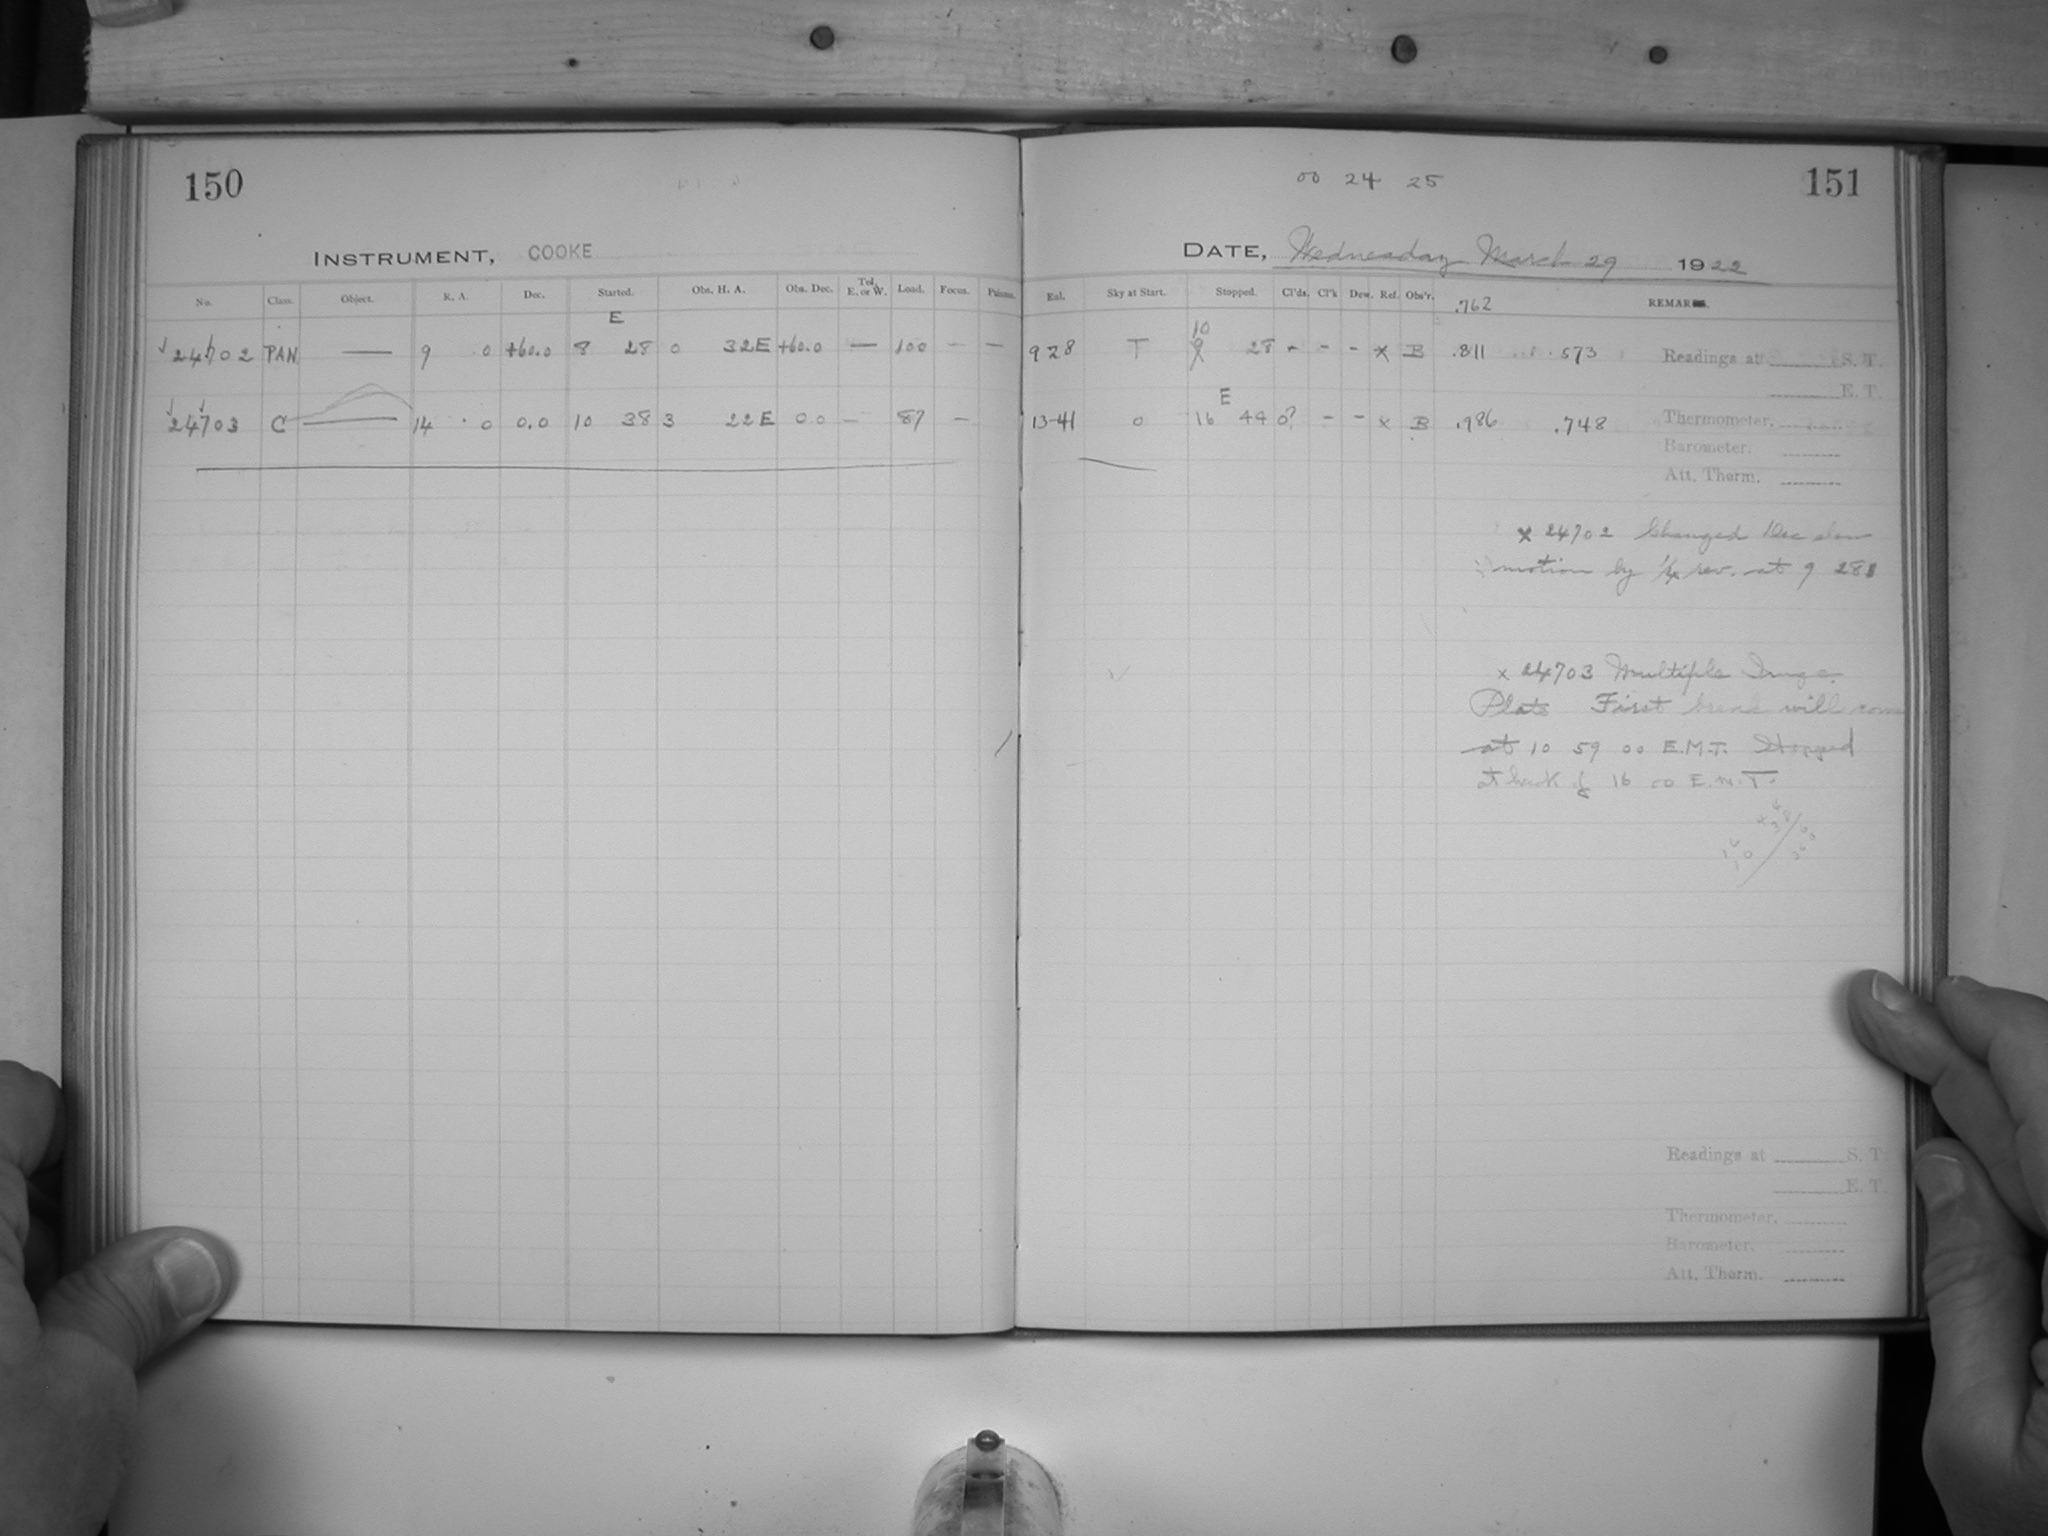 150
INSTRUMENT, COOKE
No. Class. Object. R. A. Dec. Started. Obs. H. A. Obs. Dec. Tel. E. or W. Load. Focus. Prisms.
E
24702 PAN — 9 0 +60.0 8 28 0 32E +60.0 — 100 — —
24703 C — 14 0 0.0 10 38 3 22E 0.0 — 87 —
00 24 25
151
DATE, Wednesday March 29 1922
Eul. Sky at Start. Stopped. Cl'ds. Cl'k Dew. Ref. Obs'r. .762 REMAR
10
9 28 T 9 28 - - - x B .811 .573 Readings at S. T.
E. T.
E
13-41 0 16 44 0? - - x B .986 .748 Thermometer,
Barometer.
Att. Therm.
x 24702 Changed Dec slow
motion by 1/4 rev. at 9 28
x 24703 Multiple Image
Plate First break will come
at 10 59 00 E.M.T. Stopped
at break of 16 00 E.M.T.
Readings at S. T.
E. T.
Thermometer,
Barometer.
Att. Therm.